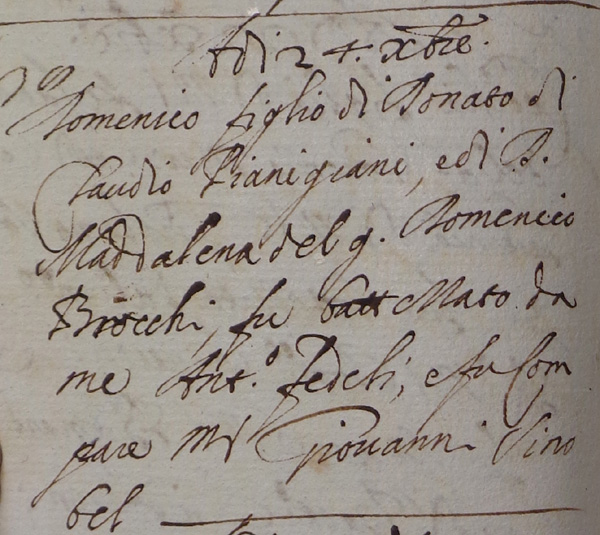 Adi 24. Xbre.
Domenico figlio di Donato di
Claudio Pianigiani, e di D.
Maddalena del q. Domenico
Brocchi, fu battezzato da
me Ant.o Fedeli, e fu Com
pare Mr Giovanni Sino
bel